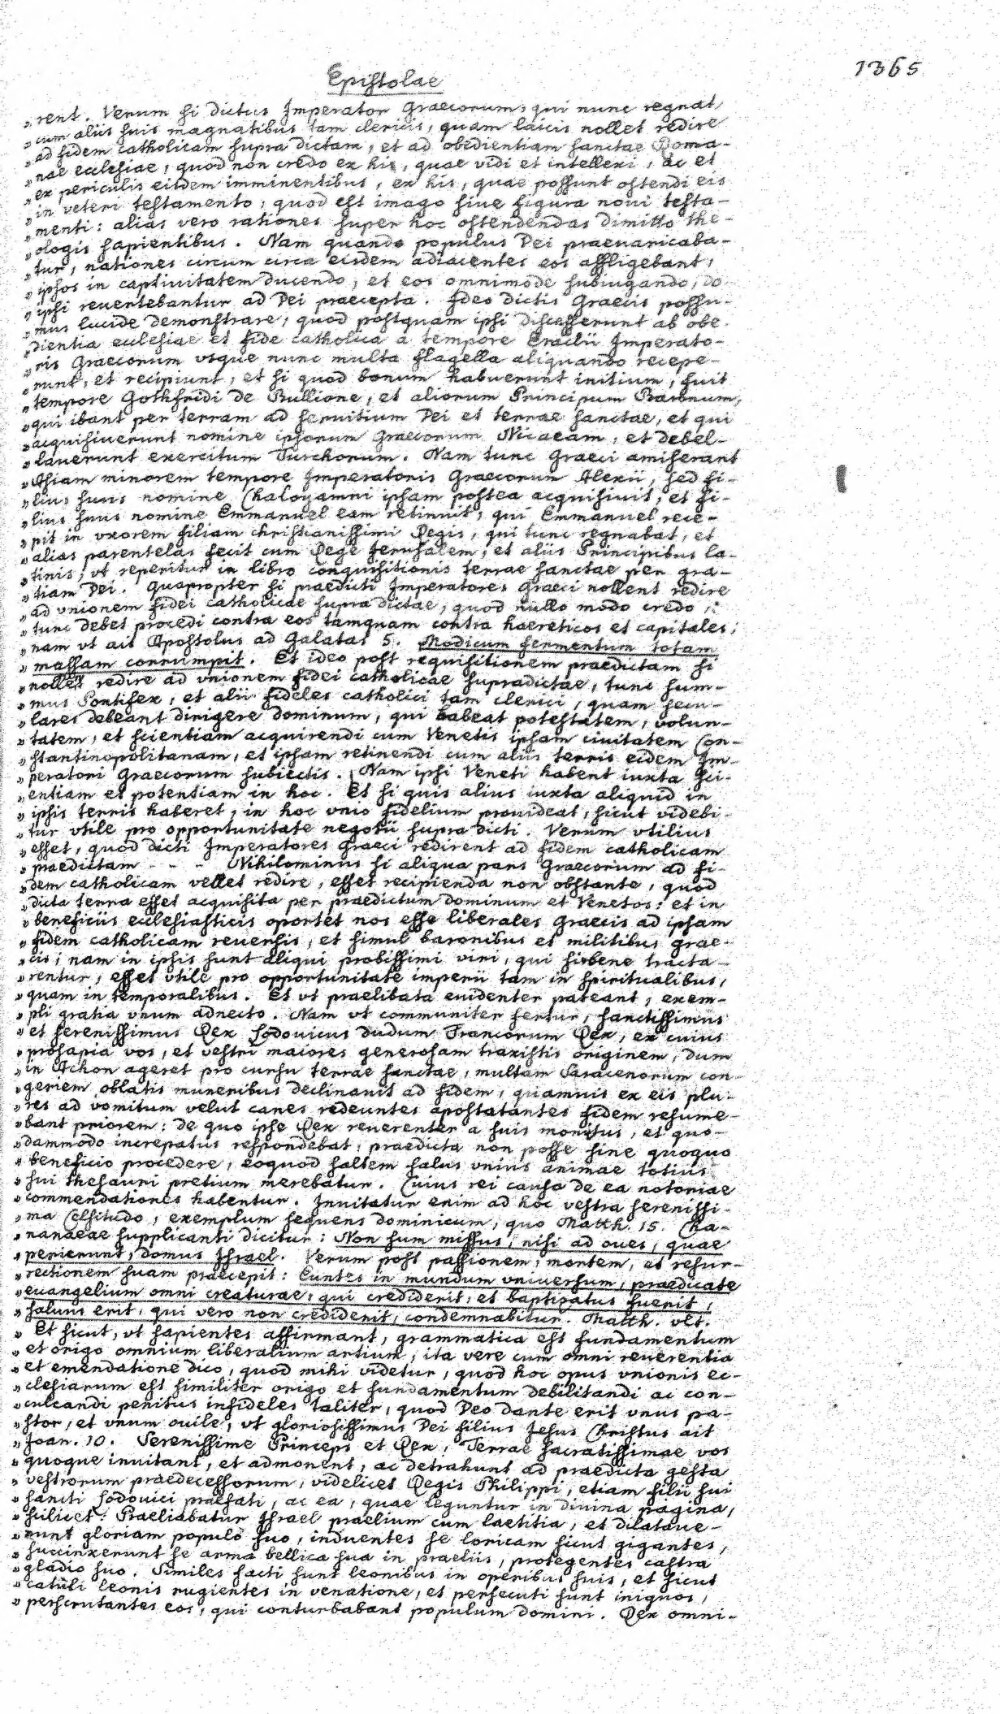 1365
Epistolae
„rent. Verum si dictus Imperator Graecorum, qui nunc regnat,
„cum aliis suis magnatibus tam clericis, quam laicis nollet redire
„ad fidem catholicam supra dictam, et ad obedientiam sanctae Roma-
„nae ecclesiae, quod non credo ex his, quae vidi et intellexi, ac et
„ex periculis eisdem imminentibus, ex his, quae possunt ostendi eis
„in veteri testamento, quod est imago sive figura novi testa-
„menti: alias vero rationes super hoc ostendendas dimitto the-
„ologis sapientibus. Nam quando populus Dei praevaricaba-
„tur, nationes circum circa eisdem adiacentes eos affligebant,
„ipsos in captivitatem ducendo, et eos omnimode subiugando, do-
„ipsi revertebantur ad Dei praecepta. Ideo dictis Graecis possu-
„mus lucide demonstrare, quod postquam ipsi discesserunt ab obe-
„dientia ecclesiae et fide catholica a tempore Eraclii Imperato-
„ris Graecorum vsque nunc multa flagella aliquando recepe-
„runt, et recipiunt, et si quod bonum habuerunt initium, fuit
„tempore Gothfridi de Bullione, et aliorum Principum Baronum,
„qui ibant per terram ad servitium Dei et terrae sanctae, et qui
„acquisiverunt nomine ipsorum Graecorum Nicaeam, et debel-
„laverunt exercitum Turchorum. Nam tunc Graeci amiserant
„Asiam minorem tempore Imperatoris Graecorum Alexii, sed fi-
„lius suus nomine Chaloyamni ipsam postea acquisivit, et fi-
„lius suus nomine Emmanuel eam retinuit, qui Emmanuel rece-
„pit in vxorem filiam christianissimi Regis, qui tunc regnabat, et
„alias parentelas fecit cum Rege Jerusalem, et aliis Principibus la-
„tinis, vt reperitur in libro conquisitionis terrae sanctae per gra-
„tiam Dei. Quapropter si praedicti Imperatores Graeci nollent redire
„ad vnionem fidei catholicae supra dictae, quod nullo modo credo,
„tunc debet procedi contra eos tamquam contra haereticos et capitales;
„nam vt ait Apostolus ad Galatas 5. Modicum fermentum totam
„massam corrumpit. Et ideo post requisitionem praedictam si
„nollet redire ad vnionem fidei catholicae supradictae, tunc sum-
„mus Pontifex, et alii fideles catholici tam clerici, quam secu-
„lares debeant dirigere dominum, qui habeat potestatem, volun-
„tatem, et scientiam acquirendi cum Venetis ipsam civitatem Con-
„stantinopolitanam, et ipsam retinendi cum aliis terris eidem Im-
„peratori Graecorum subiectis. Nam ipsi Veneti habent iuxta sci-
„entiam et potentiam in hoc. Et si quis alius iuxta aliquid in
„ipsis terris haberet, in hoc vnio fidelium provideat, sicut videbi-
„tur vtile pro opportunitate negotii supra dicti. Verum vtilius
„esset, quod dicti Imperatores Graeci redirent ad fidem catholicam
„praedictam - - - Nihilominus si aliqua pars Graecorum ad fi-
„dem catholicam vellet redire, esset recipienda non obstante, quod
„dicta terra esset acquisita per praedictum dominum et Venetos: et in
„beneficiis ecclesiasticis oportet nos esse liberales Graecis ad ipsam
„fidem catholicam reversis, et simul baronibus et militibus Grae-
„cis, nam in ipsis sunt aliqui probissimi viri, qui si bene tracta-
„rentur, esset vtile pro opportunitate imperii tam in spiritualibus,
„quam in temporalibus. Et vt praelibata evidenter pateant, exem-
„pli gratia vnum adnecto. Nam vt communiter fertur, sanctissimus
„et serenissimus Rex Lodovicus dudum Francorum Rex, ex cuius
„prosapia vos, et vestri maiores generosam traxistis originem, dum
„in Achon ageret pro cursu terrae sanctae, multam Saracenorum con-
„geriem oblatis muneribus declinavit ad fidem, quamvis ex eis plu-
„res ad vomitum velut canes redeuntes apostatantes fidem resume-
„bant priorem: de quo ipse Rex reverenter a suis monitus, et quo-
„dammodo increpatus respondebat, praedicta non posse sine quoquo
„beneficio procedere, eoquod saltem salus vnius animae totius
„sui thesauri pretium merebatur. Cuius rei causa de ea notoriae
„commendationes habentur. Invitatur enim ad hoc vestra serenissi-
„ma Celsitudo, exemplum sequens dominicum, quo Matth. 15. Cha-
„nanaeae supplicanti dicitur: Non sum missus, nisi ad oues, quae
„perierunt, domus Israel. Verum post passionem, mortem, et resur-
„rectionem suam praecepit: Euntes in mundum vniversum, praedicate
„evangelium omni creaturae, qui crediderit, et baptizatus fuerit,
„salvus erit, qui vero non crediderit, condemnabitur. Matth. vlt.
„Et sicut, vt sapientes affirmant, grammatica est fundamentum
„et origo omnium liberalium artium, ita vere cum omni reverentia
„et emendatione dico, quod mihi videtur, quod hoc opus vnionis ec-
„clesiarum est similiter origo et fundamentum debilitandi ac con-
„culcandi penitus infideles taliter, quod Deo dante erit vnus pa-
„stor, et vnum ouile, vt gloriosissimus Dei filius Jesus Christus ait
„Joan. 10. Serenissime Princeps et Rex, Terrae Sacratissimae vos
„quoque invitant, et admonent, ac detrahunt ad praedicta gesta
„vestrorum praedecessorum, videlicet Regis Philippi, etiam filii sui
„sancti Lodovici praefati, ac ea, quae leguntur in divina pagina,
„scilicet: Praeliabatur Israel praelium cum laetitia, et dilatave-
„runt gloriam populo suo, induentes se loricam sicut gigantes,
„succinxerunt se arma bellica sua in praeliis, protegentes castra
„gladio suo. Similes facti sunt leonibus in operibus suis, et sicut
„catuli leonis rugientes in venatione, et persecuti sunt iniquos,
„perscrutantes eos, qui conturbabant populum domini. Rex omni-